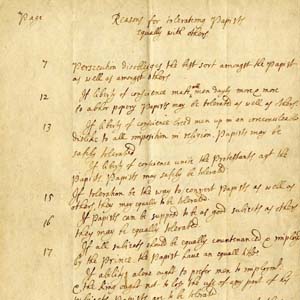 Page Reasons for tolerateing Papists
equally with others
7 Persecution disobleiges the best sort amongst the Papists
as well as amongst others
12 If liberty of conscience make all men dayly more & more
to abhor popery Papists may be tolerated as well as others.
13 If liberty of conscience breed men up in an irreconcileable
dislike to all imposition in religion. Papists may be
safely tolerated
If liberty of conscience unite the Protestants agt the
Papists Papists may safely be tolerated
15 If toleration be the way to convert Papists as well as
others, they may equally to be tolerated.
16 If Papists can be supposd to be as good subjects as others
they may be equally tolerated
17 If all subjects should be equally countenanced & imployd
by the Prince. the Papist have an equall title
If abilitys alone ought to prefer men to imployment
& the King ought not to lose the use of any part of his
subjects Papists are to be tolerated